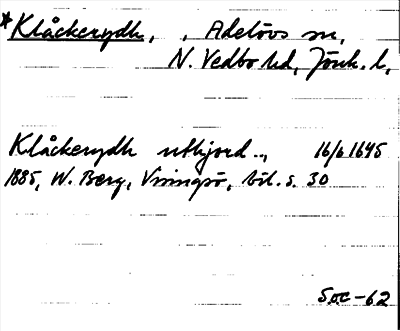 *Klåckerydh, , Adelövs sn,
N. Vedbo hd, Jönk. l,
Klåckerydh utkjord.., 16/6 1645
1885, W. Berg, Visingsö, bil. s. 30
Soc-62